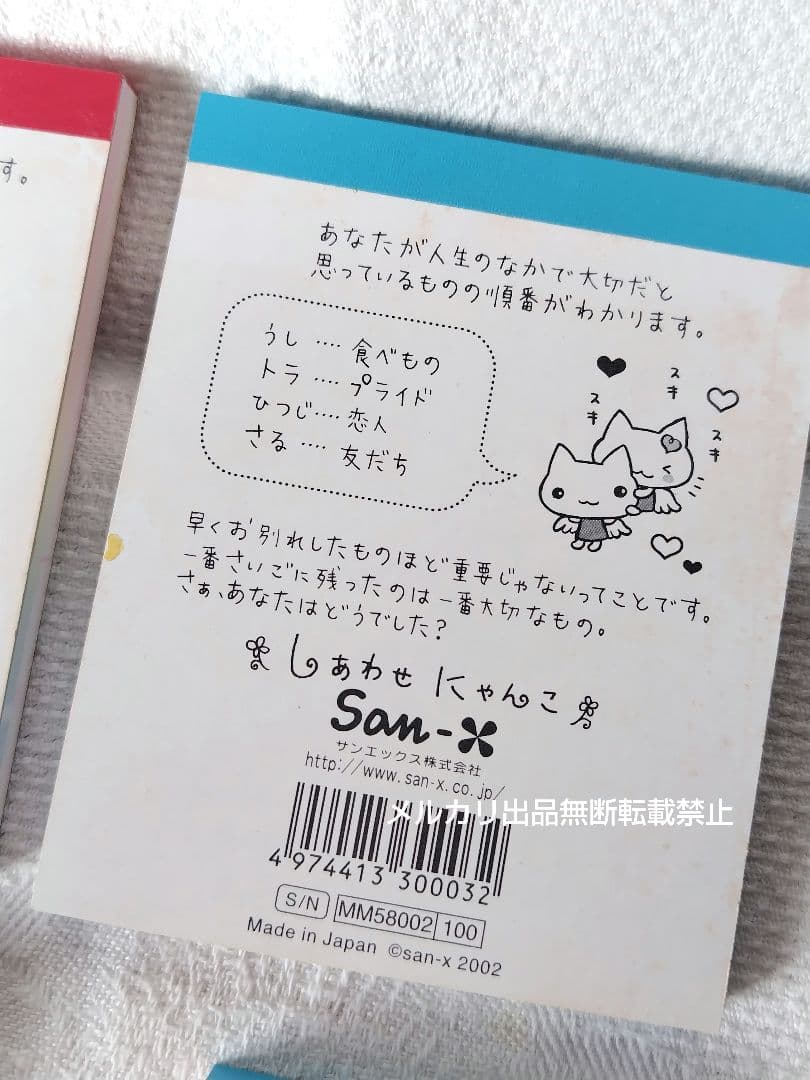 す。
あなたが人生のなかで大切だと
思っているものの順番がわかります。
うし ‥‥ 食べもの
トラ ‥‥ プライド
ひつじ‥‥ 恋人
さる ‥‥ 友だち
スキ
スキ
スキ
早くお別れしたものほど重要じゃないってことです。
一番さいごに残ったのは一番大切なもの。
さぁ、あなたはどうでした?
しあわせ にゃんこ
San-X
サンエックス株式会社
http://www.san-x.co.jp/
メルカリ出品無断転載禁止
4 974413 300032
S/N MM58002 100
Made in Japan ©san-x 2002